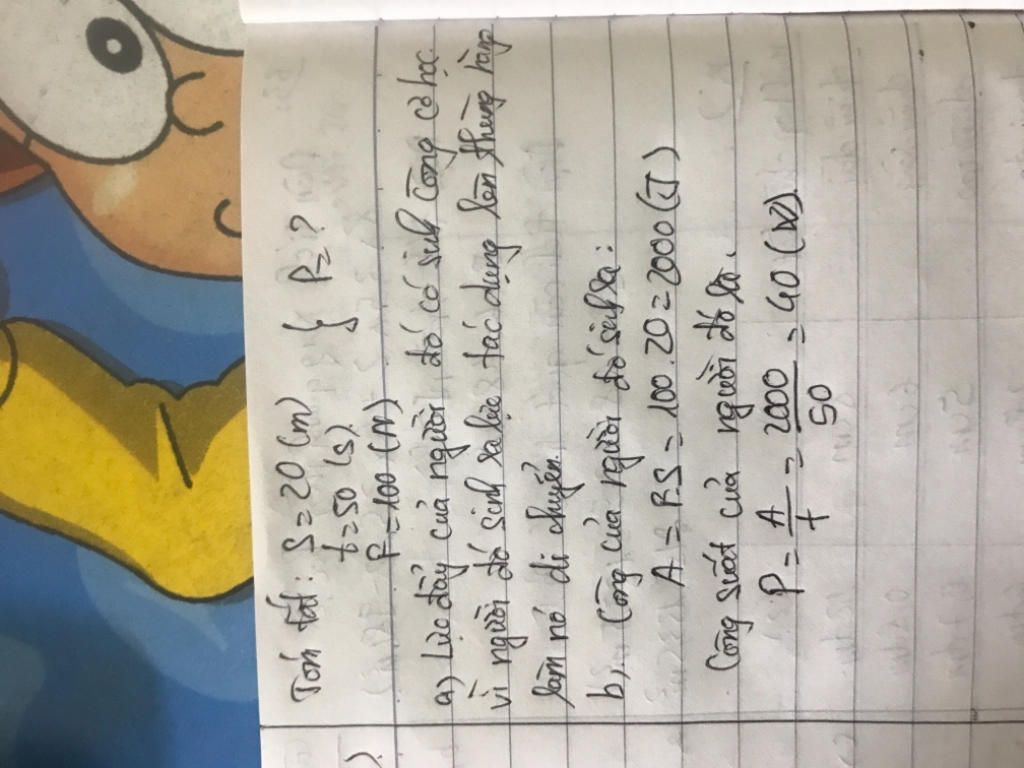 Tóm tắt: S = 20 (m)
t = 50 (s) } P = ?
F = 100 (N)
a) Lực đẩy của người đó có sinh công cơ học
vì người đó sinh ra lực tác dụng lên thùng hàng
làm nó di chuyển.
b, Công của người đó sinh ra:
A = F.S = 100.20 = 2000 (J)
Công suất của người đó là.
P = A/t = 2000/50 = 40 (W).